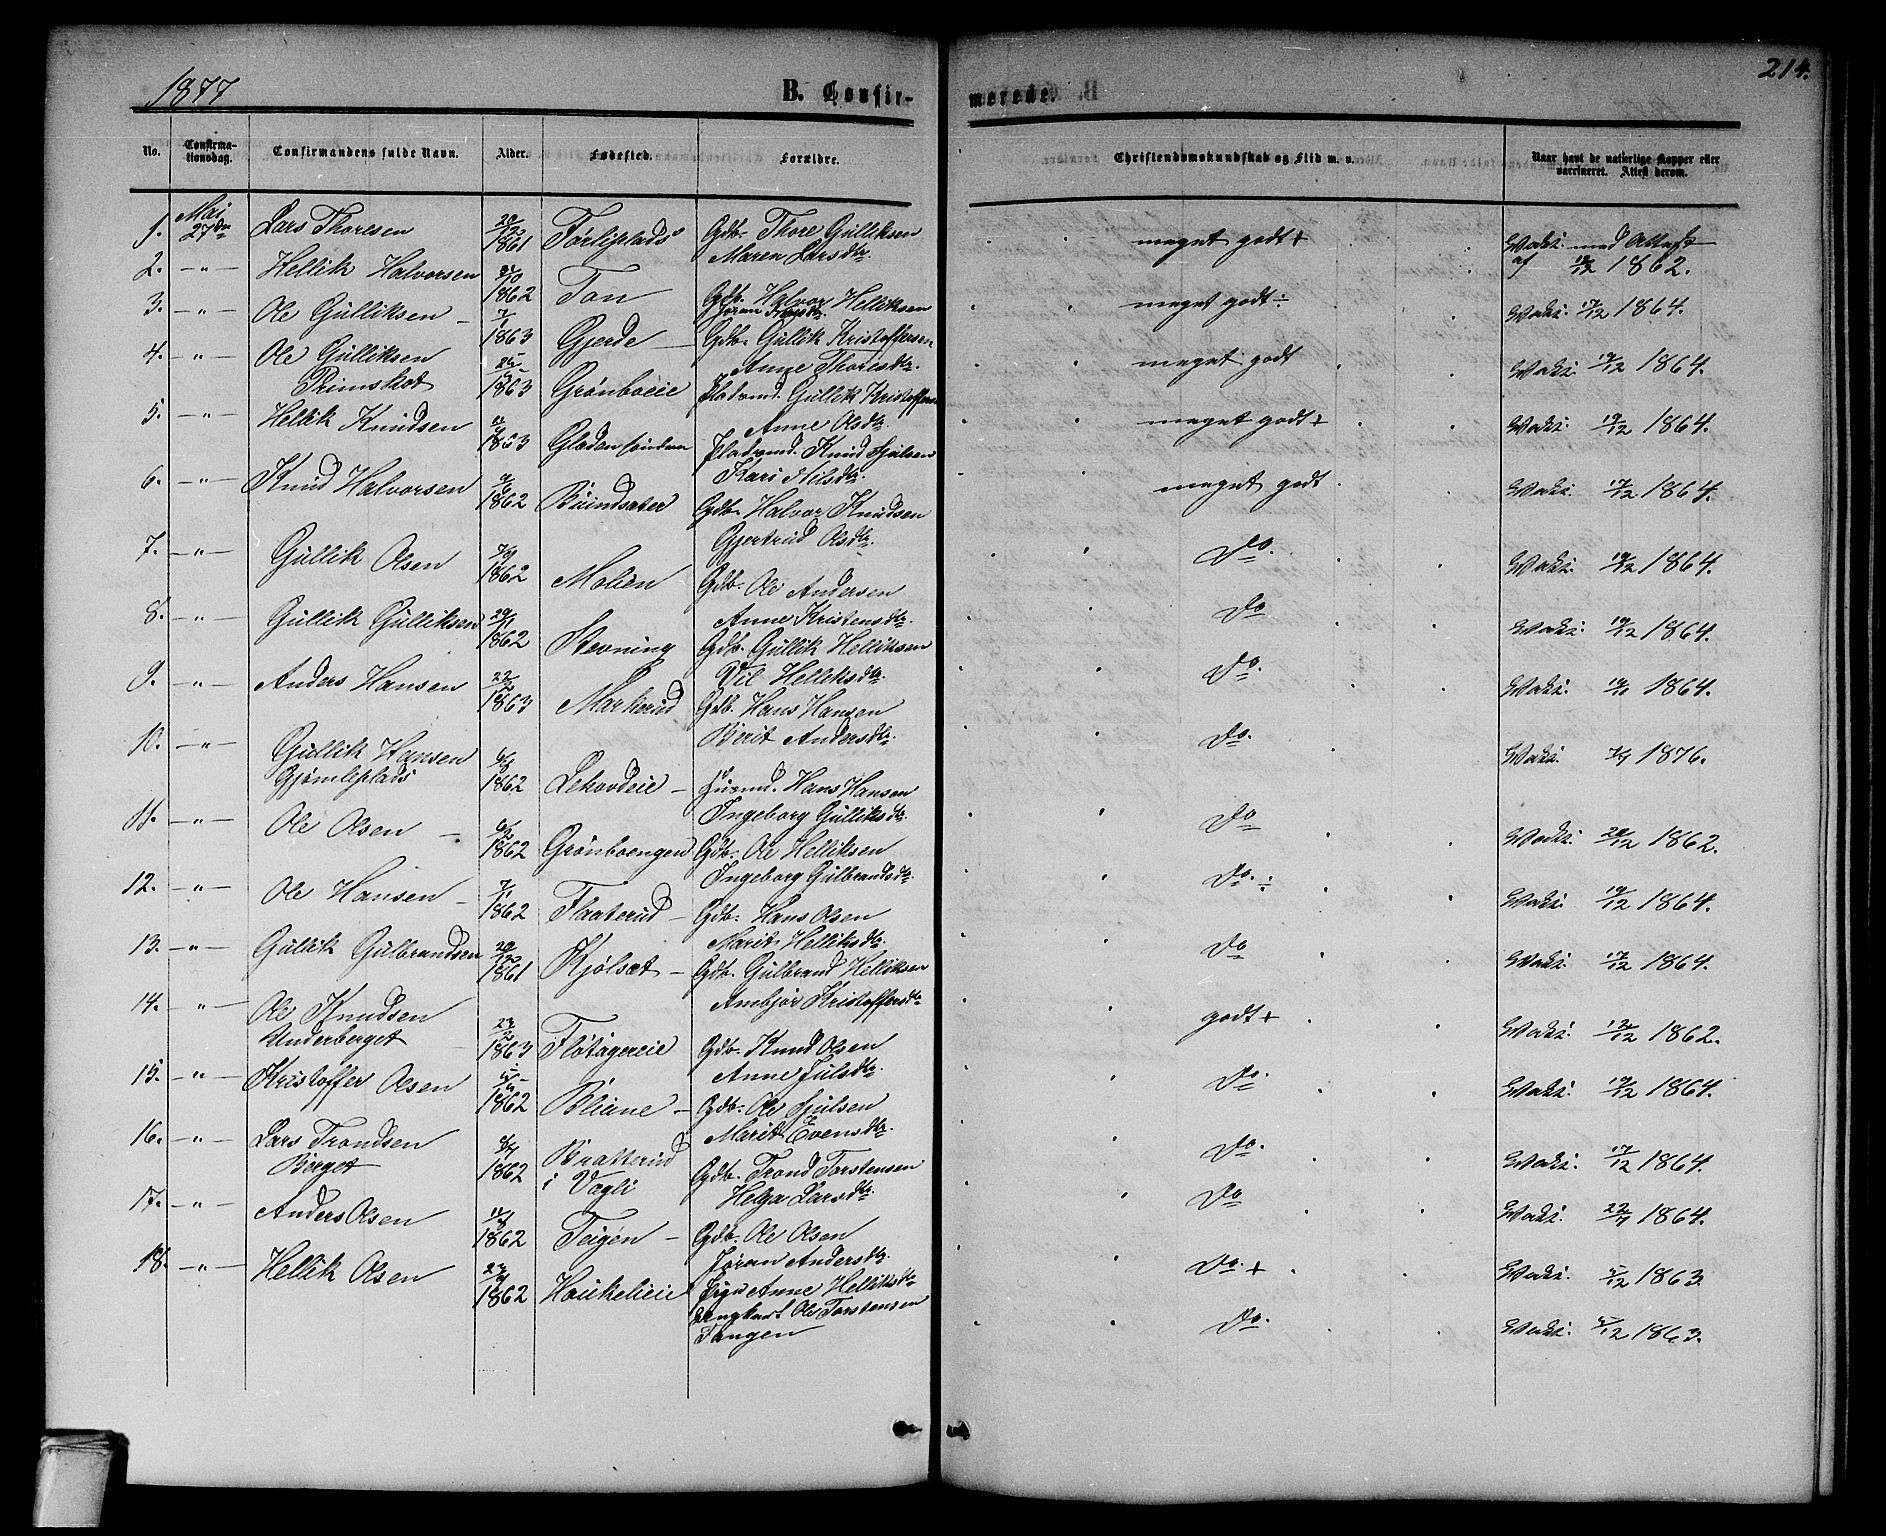 1877
B. Confir-
merede.
214.
No.
Confirma-tionsdag.
Confirmandens fulde Navn.
Alder.
Fødested.
Forældre.
Christendomskundskab og Flid m. v.
Naar havt de naturlige Kopper eller vaccineret. Attest derom.
1. Mai 27de Lars Thoresen 20/12 1861 Førliplads Gdb. Thore Gulliksen
Maren Larsdtr. meget godt + Vaks: med Attest af 19/12 1862.
2. -"- Hellik Halvorsen 1862 Ton Gdb. Halvor Helliksen
Jøran meget godt ÷ Vaks: 17/12 1864.
3. -"- Ole Gulliksen 1863 Gjerde Gdb. Gullik Kristoffersen
Anne Thoresdtr. meget godt Vaks: 19/12 1864.
4. -"- Ole Gulliksen
Primskot 1863 Grønboeie Pladsmd. Gullik Kristoffers.
Anne Olsdtr. meget godt + Vaks: 19/12 1864.
5. -"- Hellik Knudsen 1863 Gladen søndre Pladsmd. Knud Sjulsen
Kari Nilsdtr. meget godt. Vaks: 17/12 1864.
6. -"- Knud Halvorsen 1862 Buindsæter Gdb. Halvor Knudsen
Gjertrud Olsdtr. Do. Vaks: 19/12 1864.
7. -"- Gullik Olsen 1862 Molien Gdb. Ole Andersen
Anne Kristensdtr. Do Vaks: 19/12 1864.
8. -"- Gullik Gulliksen 29/11 1862 Stevning Gdb. Gullik Helliksen
Vil Helliksdtr. Do. Vaks: 1864.
9. -"- Anders Hansen 22/2 1863 Markerud Gdb. Hans Hansen
Berit Andersdtr. Do. Vaks: 1876.
10. -"- Gullik Hansen
Gjømleplads 1862 Lekovdeie - Husmd. Hans Hansen
Ingeborg Gulliksdtr. Do Vaks: 20/12 1862.
11. -"- Ole Olsen - 1862 Grønboengen Gdb. Ole Helliksen
Ingeborg Gulbrandsdtr. Do. ÷ Vaks: 19/12 1864.
12. -"- Ole Hansen - 7/11 1862 Flaaterud - Gdb. Hans Olsen
Marit Helliksdtr. Do Vaks: 17/12 1864.
13. -"- Gullik Gulbrandsen 20/12 1861 Kjølsæt - Gdb. Gulbrand Helliksen
Ambjør Kristoffersdtr. godt + Vaks: 12/12 1862.
14. -"- Ole Knudsen
Underberget 23/2 1863 Fløtagereie Gdb. Knud Olsen
Anne Julsdtr. Do. Vaks: 19/12 1864.
15. -"- Kristoffer Olsen 1862 Bliane - Gdb. Ole Sjulsen
Marit Evensdtr. Do. Vaks: 17/12 1864.
16. -"- Lars Trondsen
Berget 1862 Bratterud
i Vægli Gdb. Trond Torstensen
Helga Larsdtr. Do Vaks: 1864.
17. -"- Anders Olsen 1862 Teigen - Gdb. Ole Olsen
Jøran Andersdtr. Do. + Vaks: 1863
18. -"- Hellik Olsen 1862 Houkelieie Pige Anne Helliksdtr
Ungkarl Ole Torstensen
Tangen Do. Vaks: 1863.